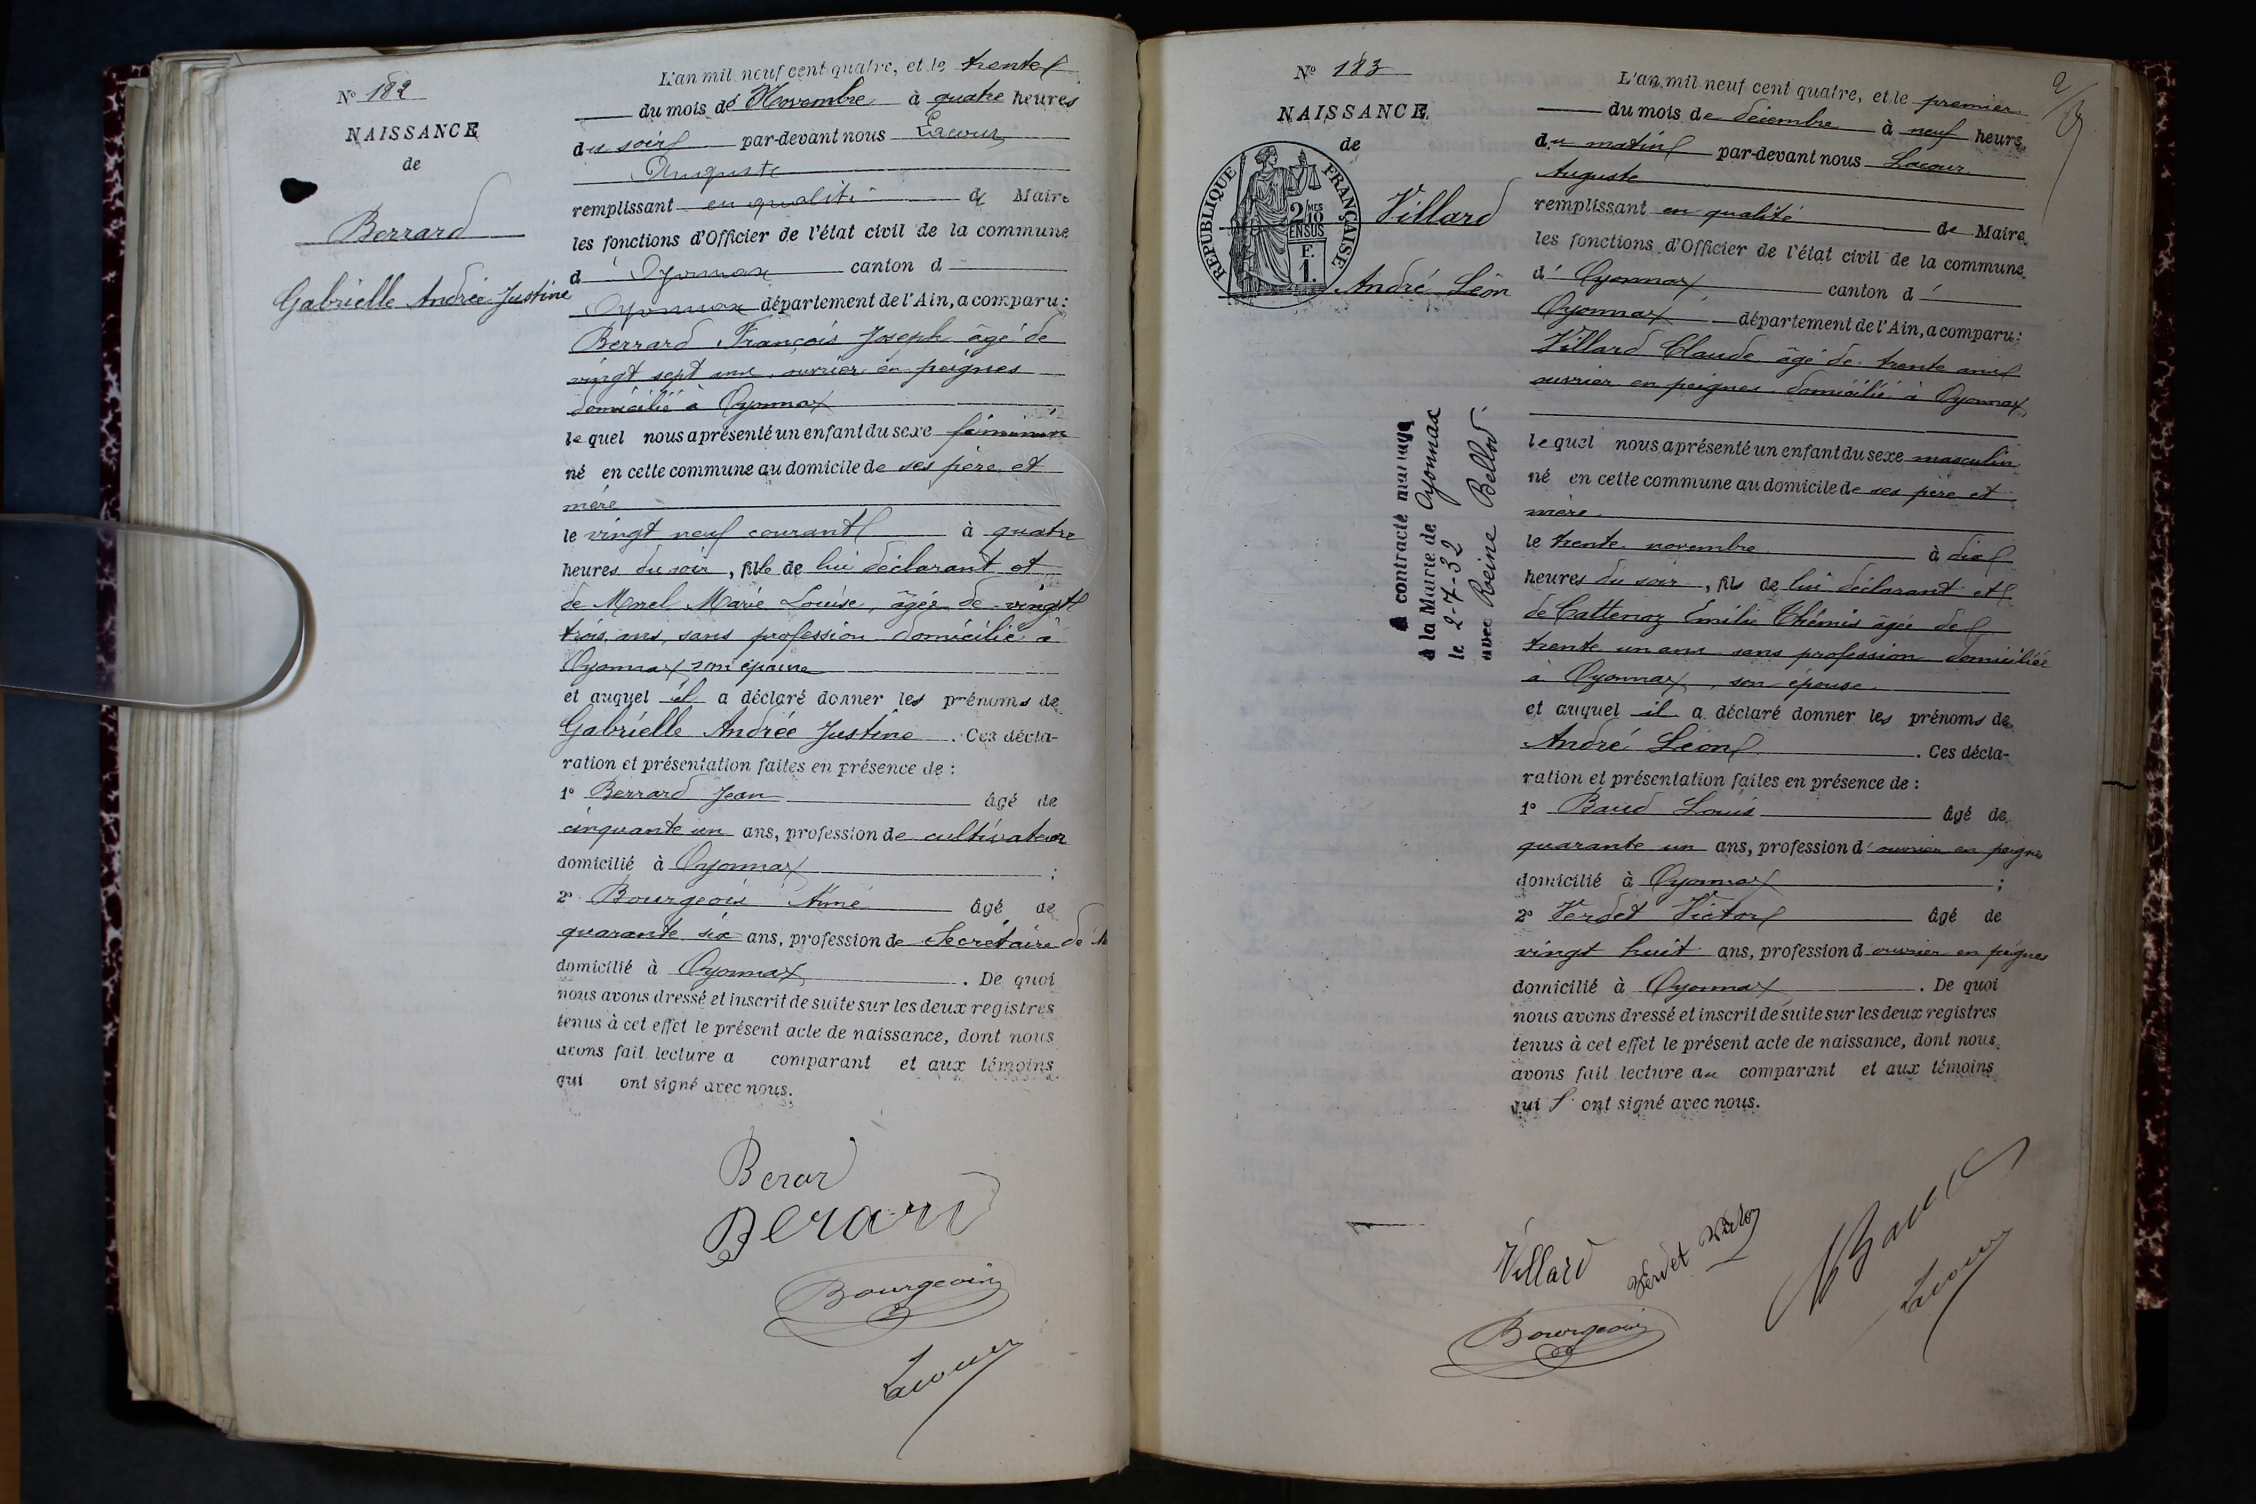 N° 182
NAISSANCE
de
Berrard
Gabrielle Andrée Justine
L'an mil neuf cent quatre, et le trente
du mois de Novembre à quatre heures
du soir par-devant nous Lacour
Auguste
remplissant en qualité de Maire
les fonctions d'Officier de l'état civil de la commune
d' Oyonnax canton d
Oyonnax département de l'Ain, a comparu:
Berrard François Joseph âgé de
vingt sept ans, ouvrier en peignes
domicilié à Oyonnax
lequel nous a présenté un enfant du sexe féminin
né en cette commune au domicile de ses père et
mère
le vingt neuf courant à quatre
heures du soir, fille de lui déclarant et
de Morel Marie Louise, âgée de vingt
trois ans, sans profession domiciliée à
Oyonnax son épouse
et auquel il a déclaré donner les prénoms de
Gabrielle Andrée Justine. Ces décla-
ration et présentation faites en présence de :
1° Berrard Jean âgé de
cinquante un ans, profession de cultivateur
domicilié à Oyonnax ;
2° Bourgeois Aimé âgé de
quarante six ans, profession de Secrétaire de M
domicilié à Oyonnax. De quoi
nous avons dressé et inscrit de suite sur les deux registres
tenus à cet effet le présent acte de naissance, dont nous
avons fait lecture a comparant et aux témoins
qui ont signé avec nous.
Berar
Berard
Bourgeois
Lacour
N° 183
NAISSANCE
de
REPUBLIQUE FRANÇAISE
2/10 MES
EN SUS
E.
1.
Villard
André Léon
A contracté mariage
à la Mairie de Oyonnax
le 2-7-32
avec Reine Bellod.
L'an mil neuf cent quatre, et le premier
du mois de décembre à neuf heures
du matin par-devant nous Lacour
Auguste
remplissant en qualité de Maire
les fonctions d'Officier de l'état civil de la commune
d' Oyonnax canton d'
Oyonnax département de l'Ain, a comparu:
Villard Claude âgé de trente ans
ouvrier en peignes domicilié à Oyonnax
lequel nous a présenté un enfant du sexe masculin
né en cette commune au domicile de ses père et
mère
le trente novembre à dix
heures du soir, fils de lui déclarant et
de Cattenoz Emilie Thémis âgée de
trente un ans sans profession domiciliée
à Oyonnax, son épouse.
et auquel il a déclaré donner les prénoms de
André Léon. Ces décla-
ration et présentation faites en présence de :
1° Baud Louis âgé de
quarante un ans, profession d' ouvrier en peignes
domicilié à Oyonnax ;
2° Verdet Victor âgé de
vingt huit ans, profession d ouvrier en peignes
domicilié à Oyonnax. De quoi
nous avons dressé et inscrit de suite sur les deux registres
tenus à cet effet le présent acte de naissance, dont nous
avons fait lecture au comparant et aux témoins
qui ont signé avec nous.
Villard
Verdet Victor
Baud
Bourgeois
Lacour